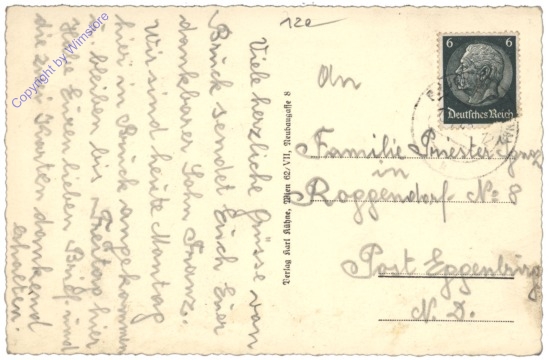 12e
Viele herzliche Grüsse von
Bruck sendet Euch Euer
dankbarer Sohn Franz.
Wir sind heute Montag
hier in Bruck angekommen
bleiben bis Freitag hier
Habe Euren lieben Brief und
die 2 Karten dankend
erhalten.
Verlag Karl Kühne, Wien 62/VII, Neubaugasse 8
6 6
Deutsches Reich
An
Familie Priester Franz
in
Roggendorf No 8
Post Eggenburg
N. D.
Copyright by Wimstore